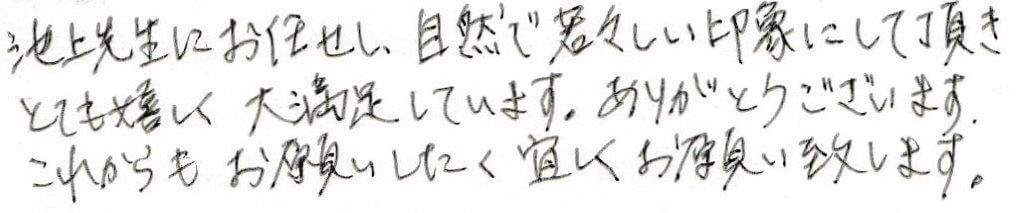 池上先生にお任せし、自然で若々しい印象にして頂き
とても嬉しく 大満足しています。ありがとうございます.
これからも お願いしたく 宜しくお願い致します。